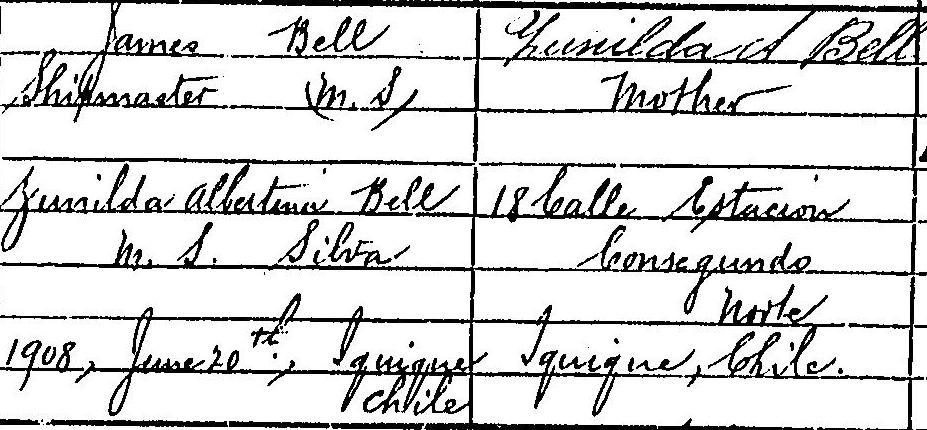 James Bell
Shipmaster (M. S)
Zunilda Albertina Bell
M. S. Silva
1908, June 20th, Iquique
Chile
Zunilda A Bell
Mother
18 Calle Estacion
Consegundo
Norte
Iquique, Chile.